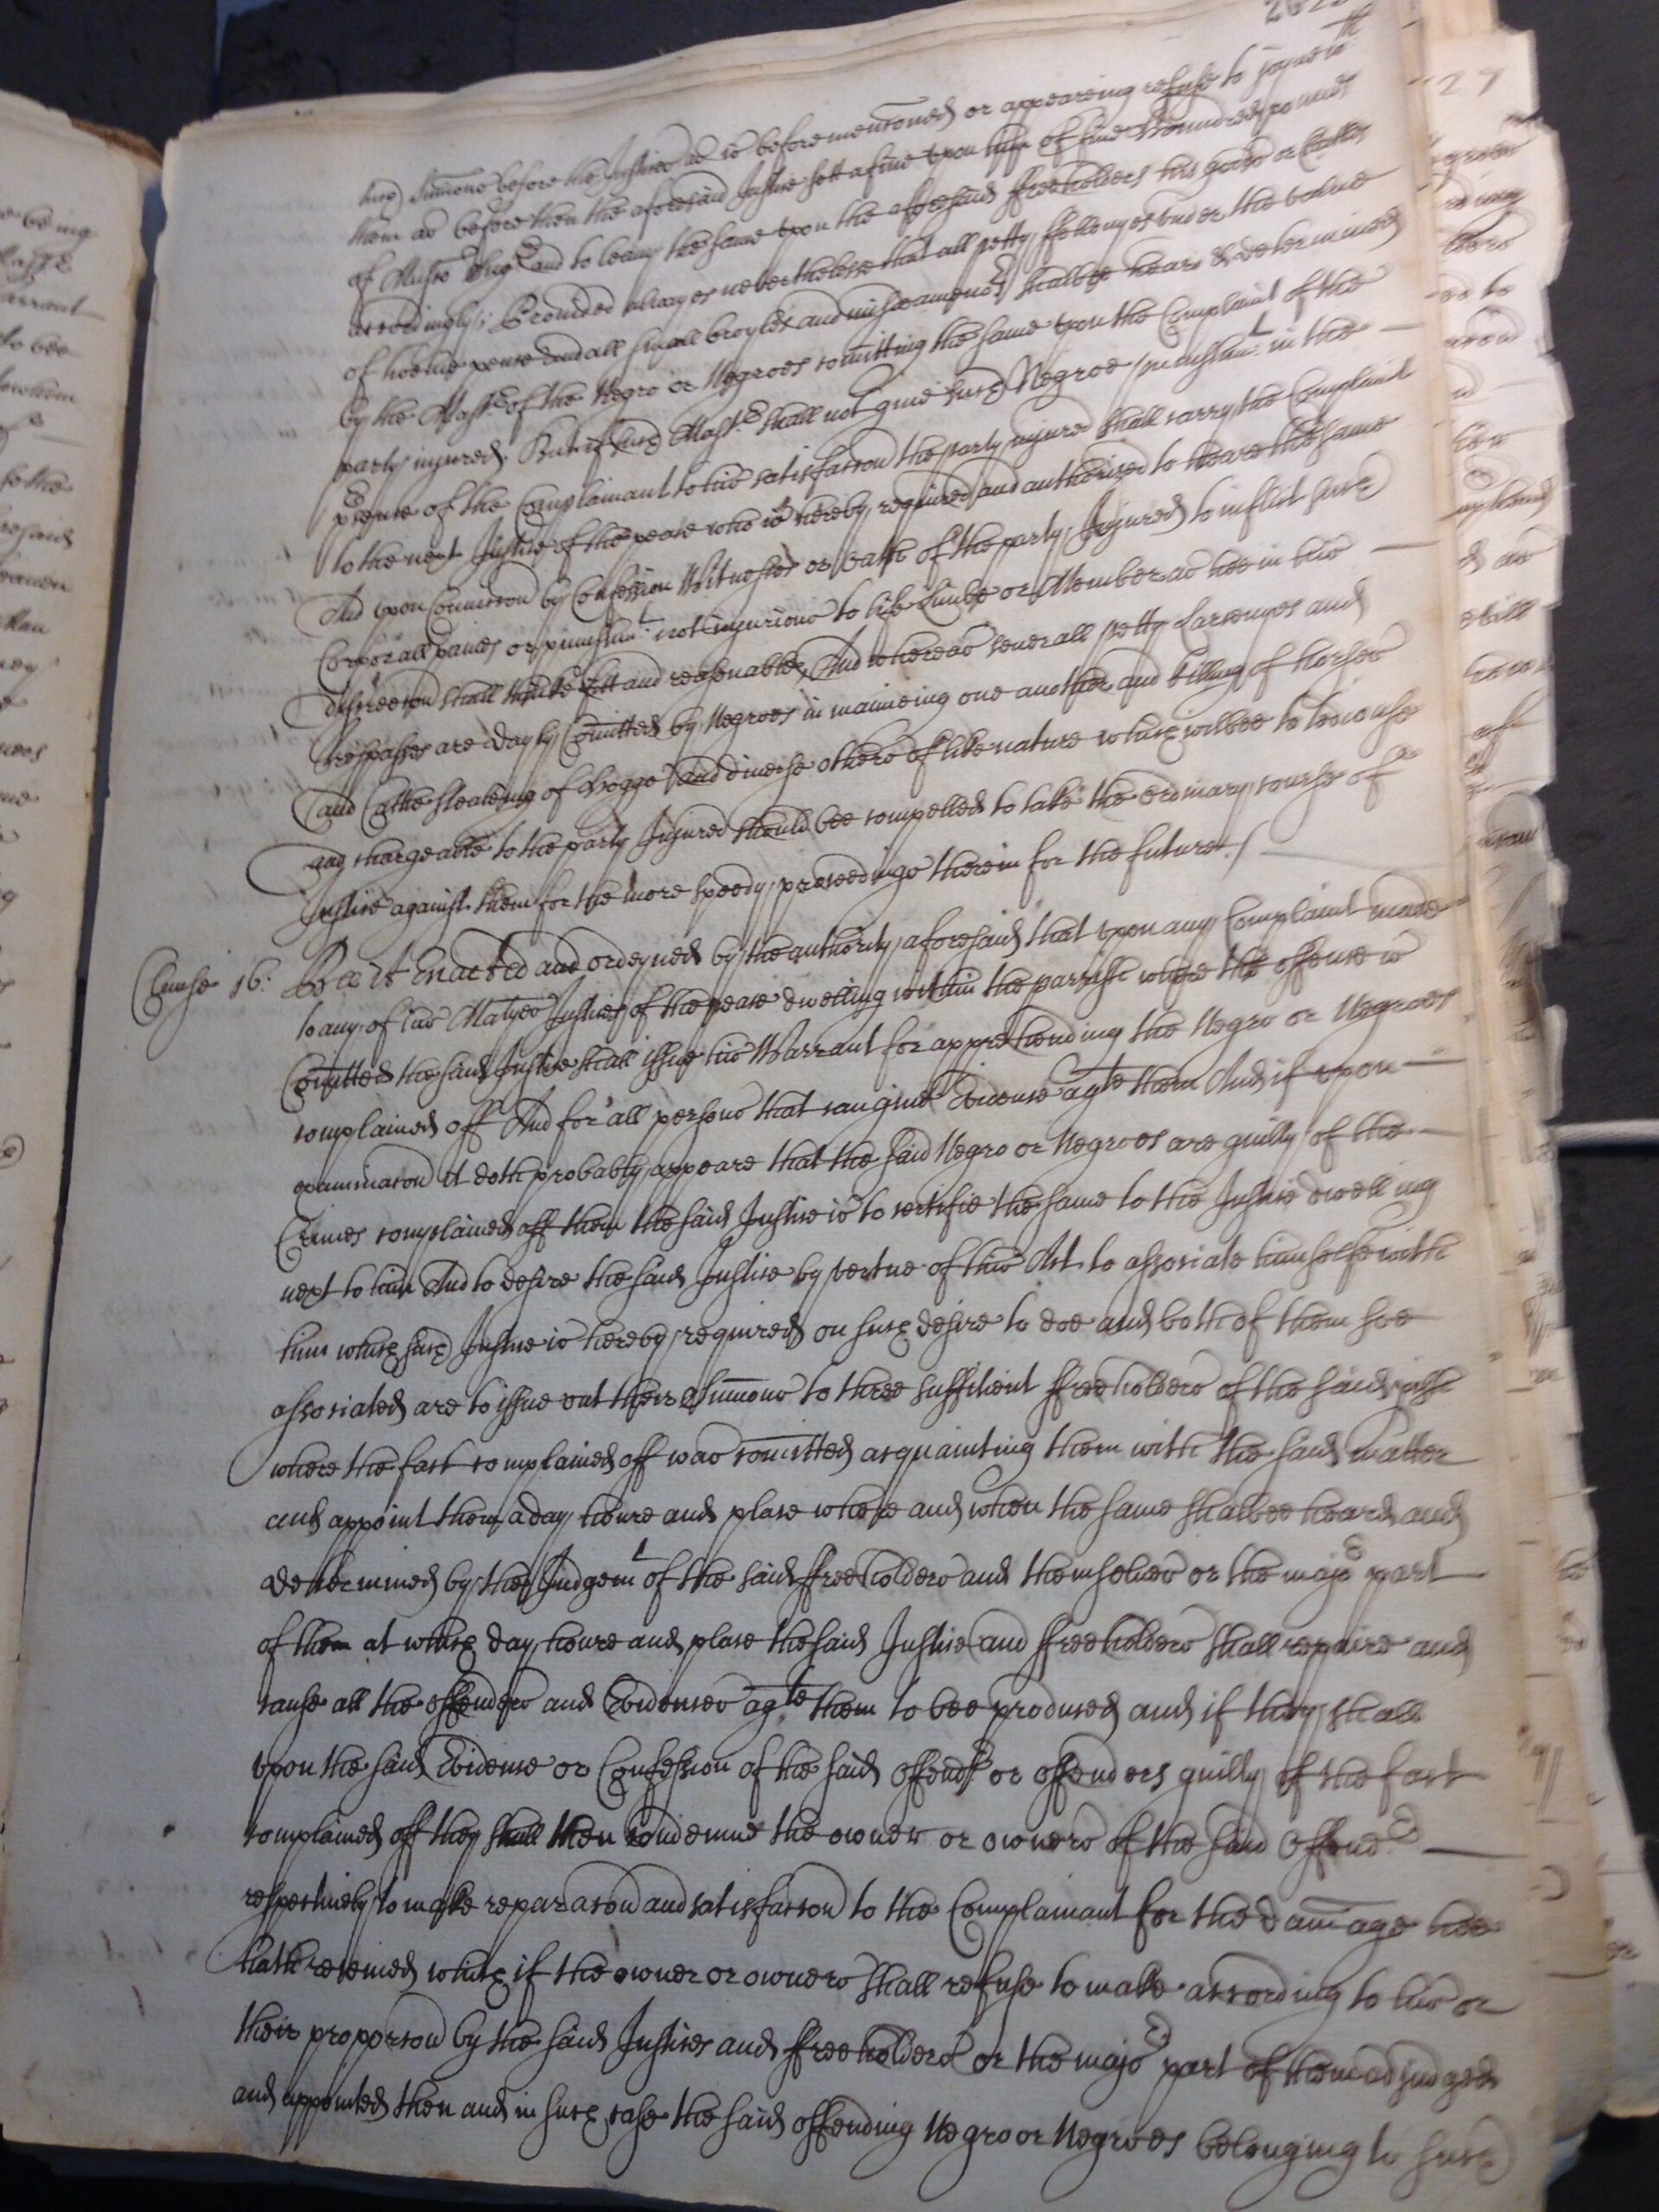 such Sumons before the Justice as is before mentoned or appeareing refuse to joyne wth
them as before then the aforesaid Justice sett a fine upon him of five hundred pounds
of Musco Sugr and to leavy the same upon the aforesaid ffreeholders his goods or Cattles
accordingly; Provided alwayes neverthelesse that all petty ffellonyes under the value
of twelve pence and all small broyles and misdeameno.rs shalbee heard & determined
by the Mastr. of the Negro or Negroes comitting the same upon the Complaint of the
party injured. But if such Mastr. shall not give such Negroe punishmt. in the —
prsence of the Complainant to his satisfaccon the party injured shall carry the Complaint
to the next Justice of the peace who is hereby required and authorized to heare the same
And upon Conviccon by Confession Witnesses or oath of the party Injured to inflict such
Corporall paines or punishmt. not injurious to life Limbe or Member as hee in his —
discrecon shall thinke fitt and reasonable, And whereas severall petty Larcenyes and
trespasses are dayly Comitted by Negroes in maimeing one another and killing of horses
and Cattle stealeing of hoggs and diverse others of like nature which wilbee to tedious
and chargeable to the party Injured should bee compelled to take the ordinary course of
Justice against them for the more speedy proceedings therein for the future /
Clause 16: Bee it Enacted and ordeyned by the authority aforesaid that upon any Complaint made
to any of his Matyes Justices of the peace dwelling within the parrish where the offence is
Comitted the said Justice shall issue his Warrant for apprehending the Negro or Negroes
complained off And for all persons that can give Evidence agte them And if upon —
examinacon it doth probably appeare that the said Negro or Negroes are guilty of the —
Crimes complained off them the said Justice is to certifie the same to the Justice dwelling
next to him And to desire the said Justice by vertue of this Act to associate himselfe with
him which such Justice is hereby required on such desire to doe and both of them soe
associated are to issue out their Sumons to three sufficient ffreeholders of the said pish
where the fact complained off was comitted acquainting them with the said matter
and appoint them a day houre and place where and when the same shalbee heard and
determined by the Judgemt of the said ffreeholders and themselves or the majo.r part
of them at which day houre and place the said Justice and ffreeholders shall repaire and
cause all the offenders and Evidences agte them to bee produced and if they shall
upon the said Evidence or Confession of the said offendr or offenders guilty of the fact
complained off they shall then condemne the owner or owners of the said offendrs —
respectively to make reparacon and satisfaccon to the Complainant for the damage hee
hath received which if the owner or owners shall refuse to make according to his or
their proporcon by the said Justices and ffreeholders or the majo.r part of them adjudged
and appointed then and in such case the said offending Negro or Negroes belonging to such